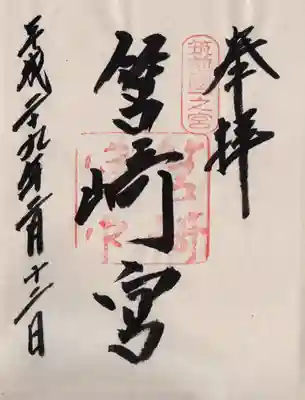 奉拝
筑前國一之宮
筥崎宮
筥崎宮
平成二十九年月十二日